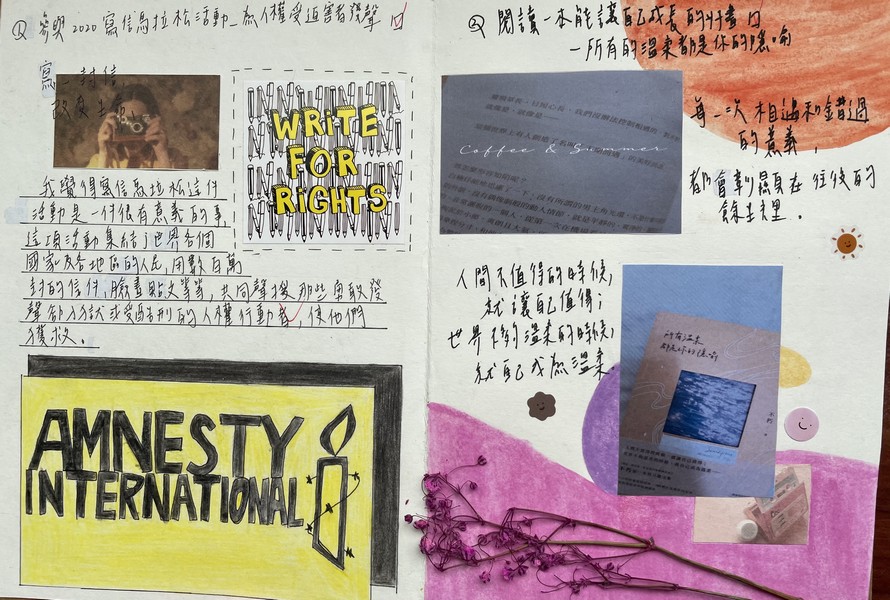 參與2020寫信馬拉松活動—為人權受迫害者發聲
寫一封信,
改變生
WRITE
FOR
RIGHTS
我覺得寫信馬拉松這件
活動是一件很有意義的事
這項活動集結了世界各個
國家及各地區的人民,用數百萬
封的信件,臉書貼文等等,共同聲援那些勇敢發
聲卻入獄或受酷刑的人權行動者,使他們
獲救.
AMNESTY
INTERNATIONAL
② 閱讀一本能讓自己成長的好書
—所有的溫柔都是你的隱喻
Coffee & Summer
每一次相遇和錯過
的意義,
都會彰顯在往後的
餘生裡.
人間不值得的時候,
就讓自己值得;
世界不夠溫柔的時候,
就自己成為溫柔.
所有溫柔
都是你的隱喻